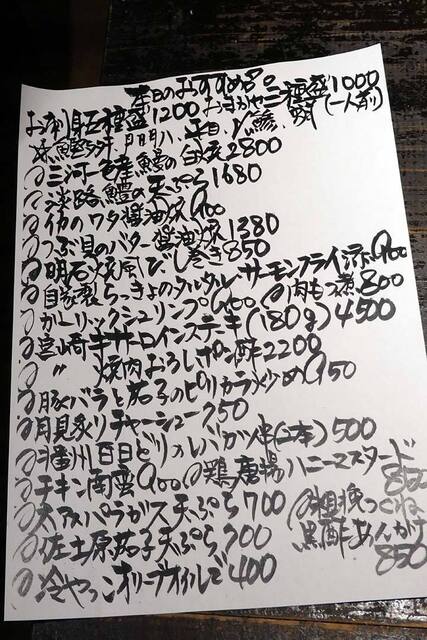 本日のおすすめ
お刺身五種盛1200 おまかせ三種盛1000
(一人前)
@三河一色産鰻の白焼2800
@淡路鱧の天ぷら1680
@イカのワタ醤油焼900
@つぶ貝のバター醤油焼1380
@明石焼風だし巻き850
@自家製らっきょのタルタル サーモンフライ添え900
@ガーリックシュリンプ950 @肉もつ煮800
@宮崎牛サーロインステーキ(180g)4500
@〃 焼肉おろしポン酢2200
@豚バラと茄子のピリカラ炒め950
@月見炙りチャーシュー750
@播州百日どりのレバー串(2本)500
@チキン南蛮900 @鶏唐揚ハニーマスタード
850
@大アスパラガス天ぷら700 @粗挽つくね
@佐土原茄子天ぷら700 黒酢あんかけ
850
@冷やっこオリーブオイルで400